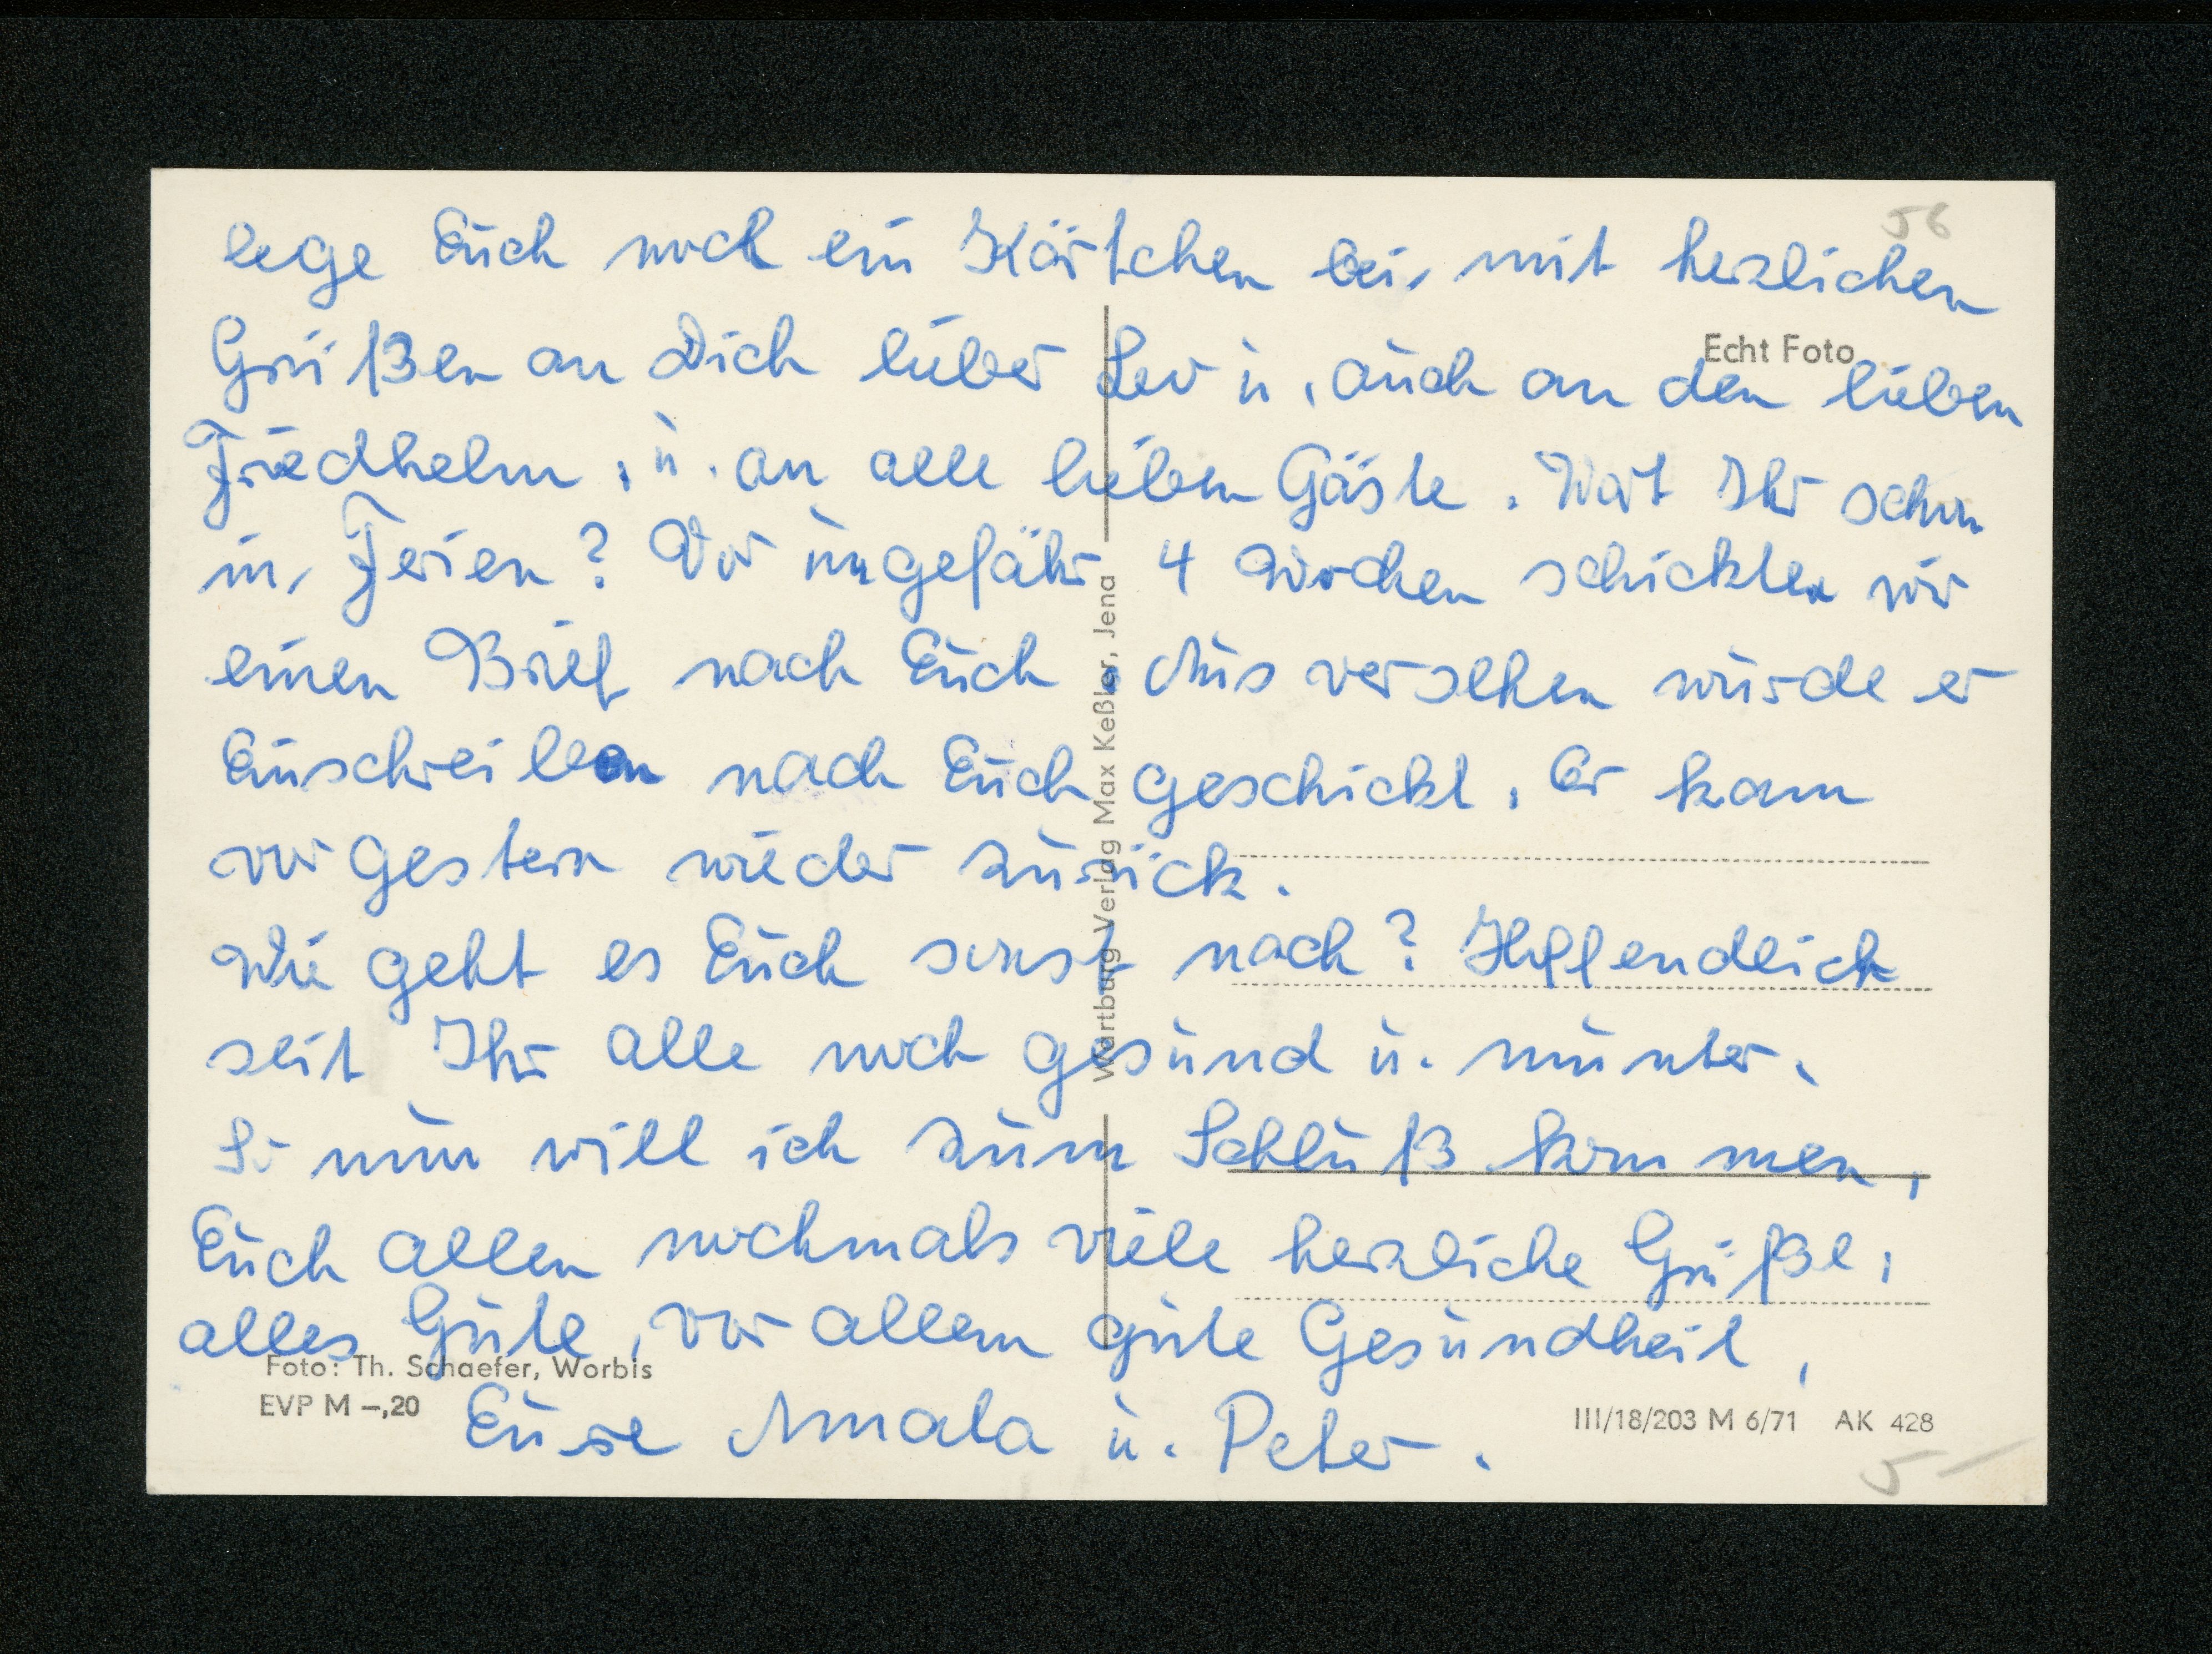 56
lege Euch noch ein Kärtchen bei, mit herzlichen
Echt Foto
Grüßen an Dich lieber Leo u, auch an den lieben
Friedhelm, u. an alle lieben Gäste. Wart Ihr schon
in, Ferien? Vor ungefähr 4 Wochen schickten wir
einen Brief nach Euch. Aus versehen wurde er
Einschreiben nach Euch geschickt. Er kam
vorgestern wieder zurück.
Wie geht es Euch sonst noch? Hoffendlich
seit Ihr alle noch gesund u. munter.
So nun will ich zum Schluß kommen,
Euch allen nochmals viele herzliche Grüße,
alles Gute, vor allem gute Gesundheit,
Eure Amala u. Peter.
Wartburg Verlag Max Keßler, Jena
Foto: Th. Schaefer, Worbis
EVP M –,20
III/18/203 M 6/71 AK 428
5–